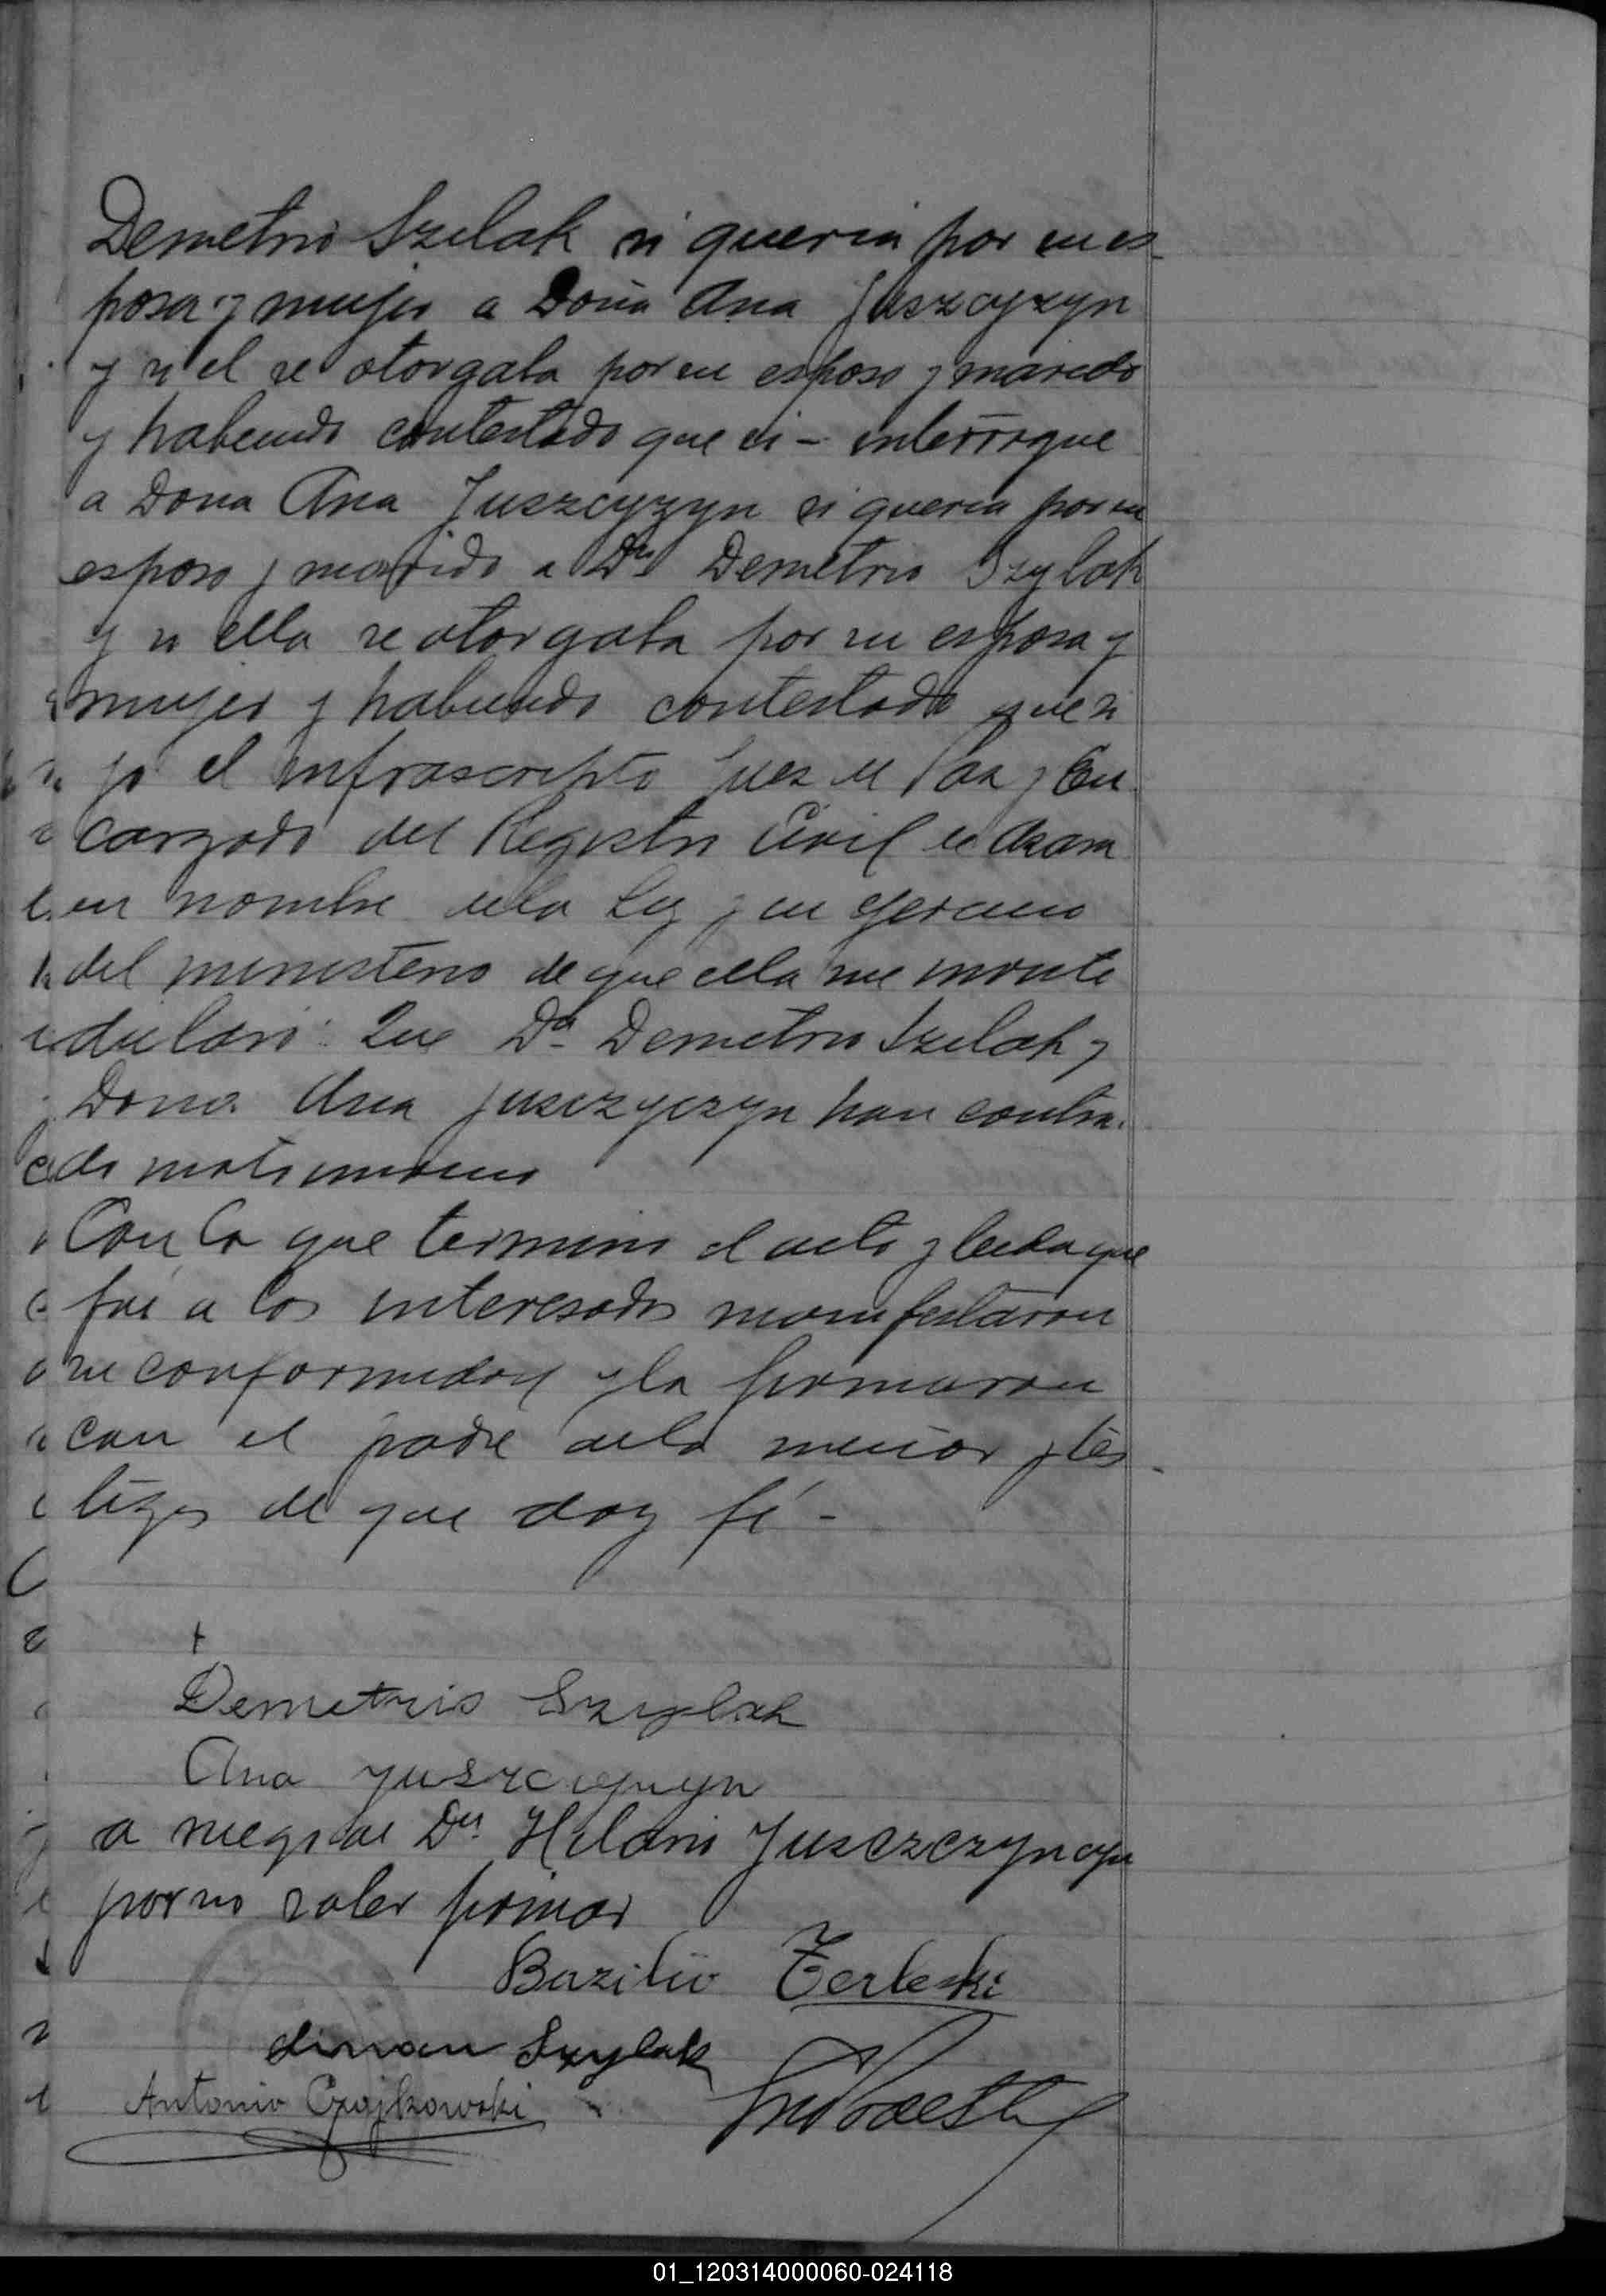 Demetrio Szelak si queria por su es
posa y mujer a Doña Ana Juszcyzyn
y si el se otorgaba por su esposo y marido
y habiendo contestado que si - interrogue
a Dona Ana Juszcyzyn si queria por su
esposo y marido a Dn Demetrio Szylak
y si ella se otorgaba por su esposa y
mujer y habiendo contestado que si
yo el infrascripto Juez de Paz y En
cargado del Registro Civil de Azara
en nombre de la Ley y en ejercicio
del ministerio de que ella me inviste
declaro: Que Dn Demetrio Szelak y
Dona Ana Juszzyczyn han contra
ido matrimonio
Con lo que termino el acto y leida que
fué a los interesados manifestaron
su conformidad y la firmaron
con el padre de la menor y tes
tigos de que doy fé -
+
Demetrio Szylak
Ana yuszcyzyn
a ruego de Dn Hilario Juszczczyn
por no saber firmar
Bazilio Terlecki
Simon Szylak
Antonio Czajkowski
01_120314000060-024118